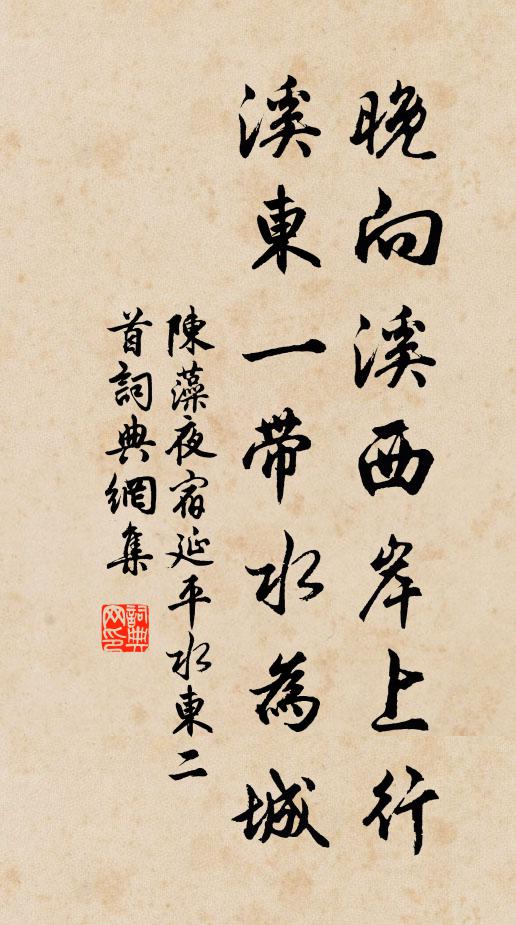 晚向溪西岸上行
溪東一帶水為城
陳藻夜宿延平水東二
首詞典網集
詞典网印